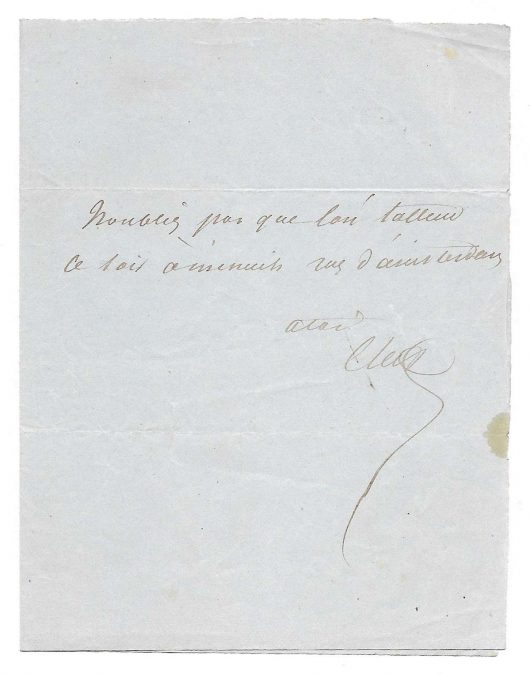 Noubliez pas que l'on t'attend
ce soir à minuit rue d'amsterdam
a toi